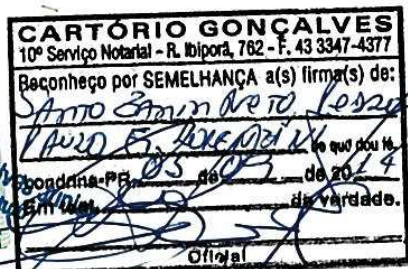 CARTÓRIO GONÇALVES
10º Serviço Notarial - R. Ibiporã, 762 - F. 43 3347-4377
Reconheço por SEMELHANÇA a(s) firma(s) de:
SANTO NETO
PAULO do que dou fé.
Londrina-PR, 03 de de 2014
Em test. da verdade.
Oficial